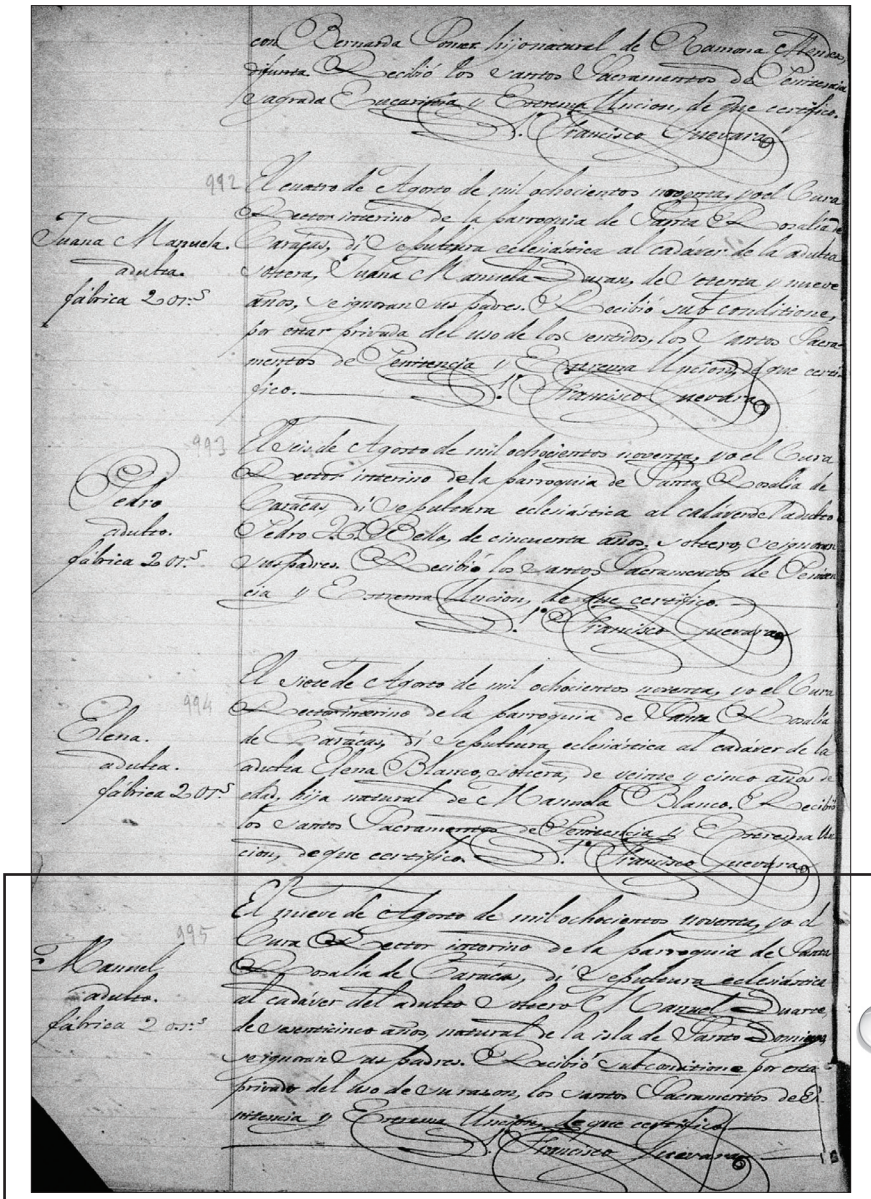 con Bernarda Ponce, hijo natural de Ramona Mendez,
difunta. Recibió los santos Sacramentos de Penitencia
Sagrada Eucaristía y Extrema Uncion, de que certifico.
Francisco Guevara
992
El cuatro de Agosto de mil ochocientos noventa, yo el Cura
Rector interino de la parroquia de Santa Rosalia de
Juana Manuela.
Carácas, dí sepultura eclesiástica al cadáver de la adulta
adulta.
soltera, Juana Manuela Duran, de setenta y nueve
fábrica 2 ors
años, se ignoran sus padres. Recibió sub conditione,
por estar privada del uso de los sentidos, los Santos Sacra-
mentos de Penitencia y Extrema Uncion, de que certi-
fico.
Francisco Guevara
993
El seis de Agosto de mil ochocientos noventa, yo el Cura
Rector interino de la parroquia de Santa Rosalia de
Pedro
Carácas, dí sepultura eclesiástica al cadáver del adulto
adulto.
Pedro Bello, de cincuenta años, soltero, se ignoran
fábrica 2 ors
sus padres. Recibió los Santos Sacramentos de Peniten
cia y Extrema Uncion, de que certifico.
Francisco Guevara
994
El siete de Agosto de mil ochocientos noventa, yo el Cura
Rector interino de la parroquia de Santa Rosalia
Elena.
de Carácas, dí sepultura eclesiástica al cadáver de la
adulta.
adulta Elena Blanco, soltera, de veinte y cinco años de
fábrica 2 ors
edad, hija natural de Manuela Blanco. Recibió
los santos Sacramentos de Penitencia y Extrema Un
cion, de que certifico.
Francisco Guevara
995
El nueve de Agosto de mil ochocientos noventa, yo el
Cura Rector interino de la parroquia de Santa
Manuel
Rosalia de Carácas, dí sepultura eclesiástica
adulto.
al cadáver del adulto soltero Manuel Duarte
fábrica 2 ors
de años, natural de la isla de Santo Domingo,
se ignoran sus padres. Recibió subconditione por estar
privado del uso de su razon, los santos Sacramentos de Pe
nitencia y Extrema Uncion, de que certifico.
Francisco Guevara